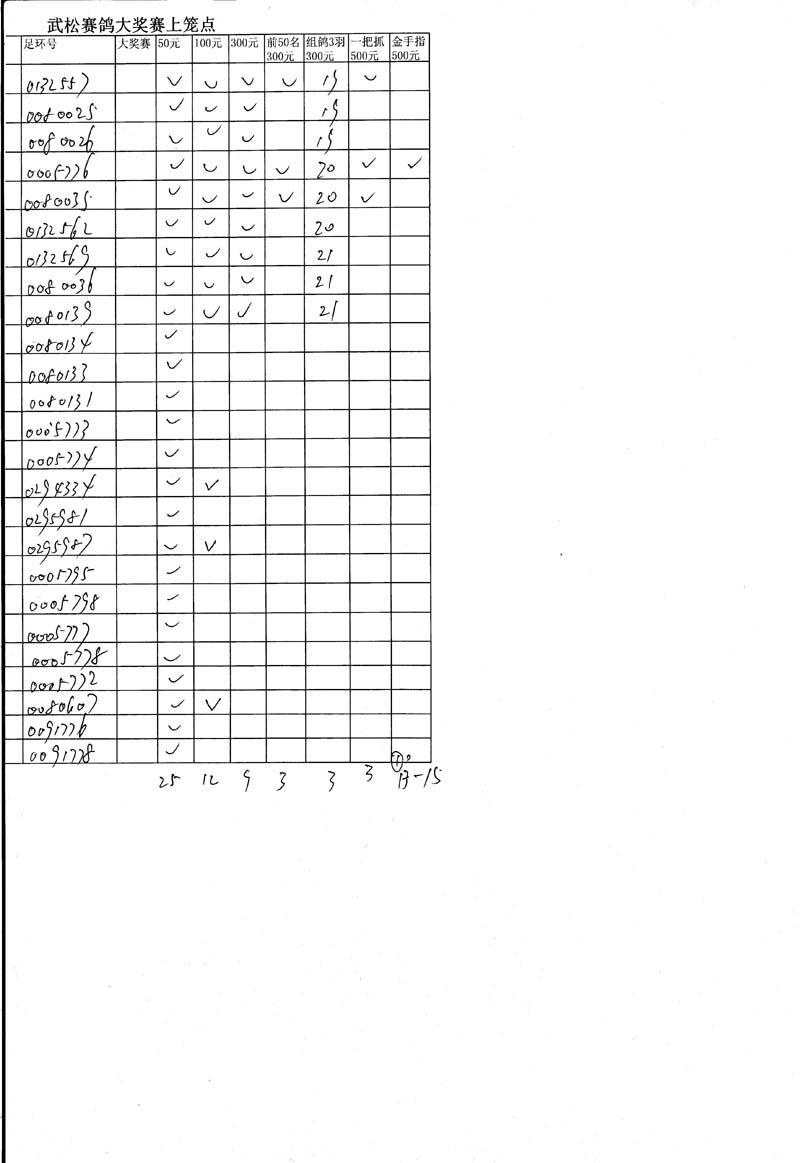 武松赛鸽大奖赛上笼点
足环号 大奖赛 50元 100元 300元 前50名300元 组鸽3羽300元 一把抓500元 金手指500元
0132557 ✓ ✓ ✓ ✓ 19 ✓
0080025 ✓ ✓ ✓ 19
0080026 ✓ ✓ ✓ 19
0005776 ✓ ✓ ✓ ✓ 20 ✓ ✓
0080035 ✓ ✓ ✓ ✓ 20 ✓
0132562 ✓ ✓ ✓ 20
0132569 ✓ ✓ ✓ 21
0080036 ✓ ✓ ✓ 21
0080139 ✓ ✓ ✓ 21
0080134 ✓
0080133 ✓
0080131 ✓
0005773 ✓
0005774 ✓
0294334 ✓ ✓
0295981 ✓
0295987 ✓ ✓
0005795 ✓
0005798 ✓
0005777 ✓
0005778 ✓
0005772 ✓
0080607 ✓ ✓
0091776 ✓
0091778 ✓
25 12 9 3 3 3 ① 13-15